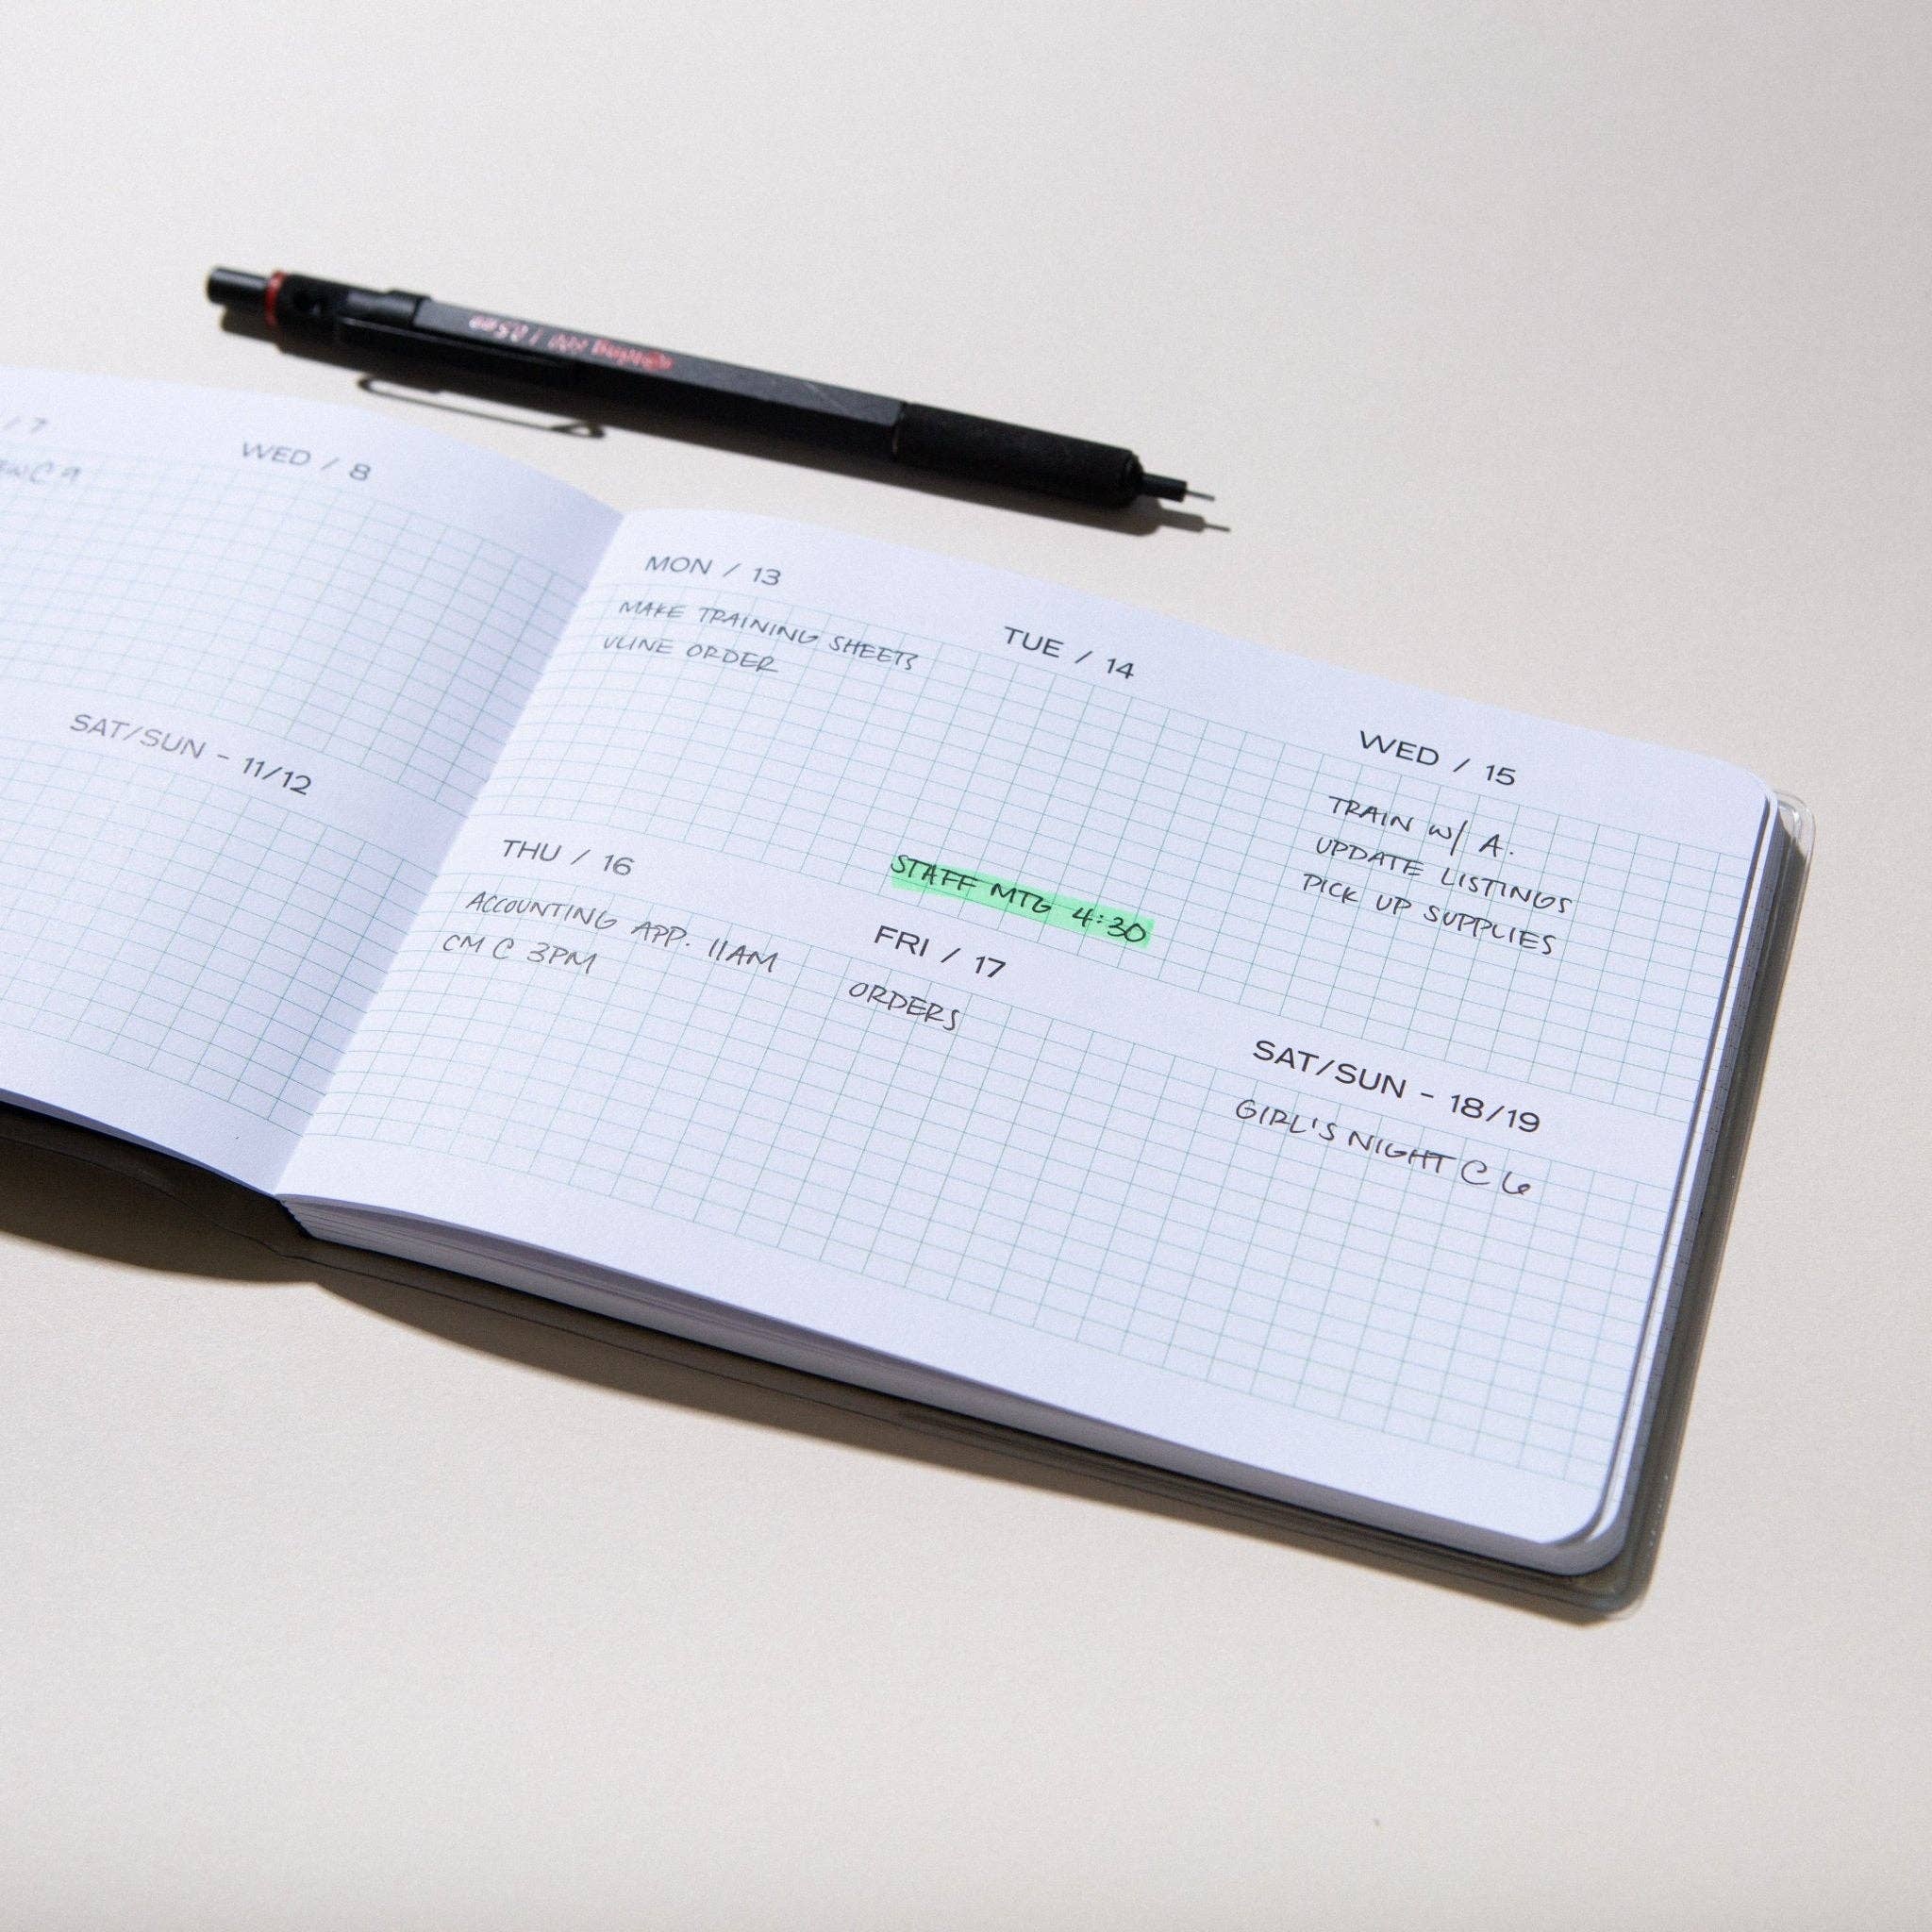 / 7
WED / 8
SAT/SUN - 11/12
MON / 13
MAKE TRAINING SHEETS
ULINE ORDER
TUE / 14
STAFF MTG 4:30
WED / 15
TRAIN W/ A.
UPDATE LISTINGS
PICK UP SUPPLIES
THU / 16
ACCOUNTING APP. 11AM
CM C 3PM
FRI / 17
ORDERS
SAT/SUN - 18/19
GIRL'S NIGHT C 6
rotring 600 / 0.5